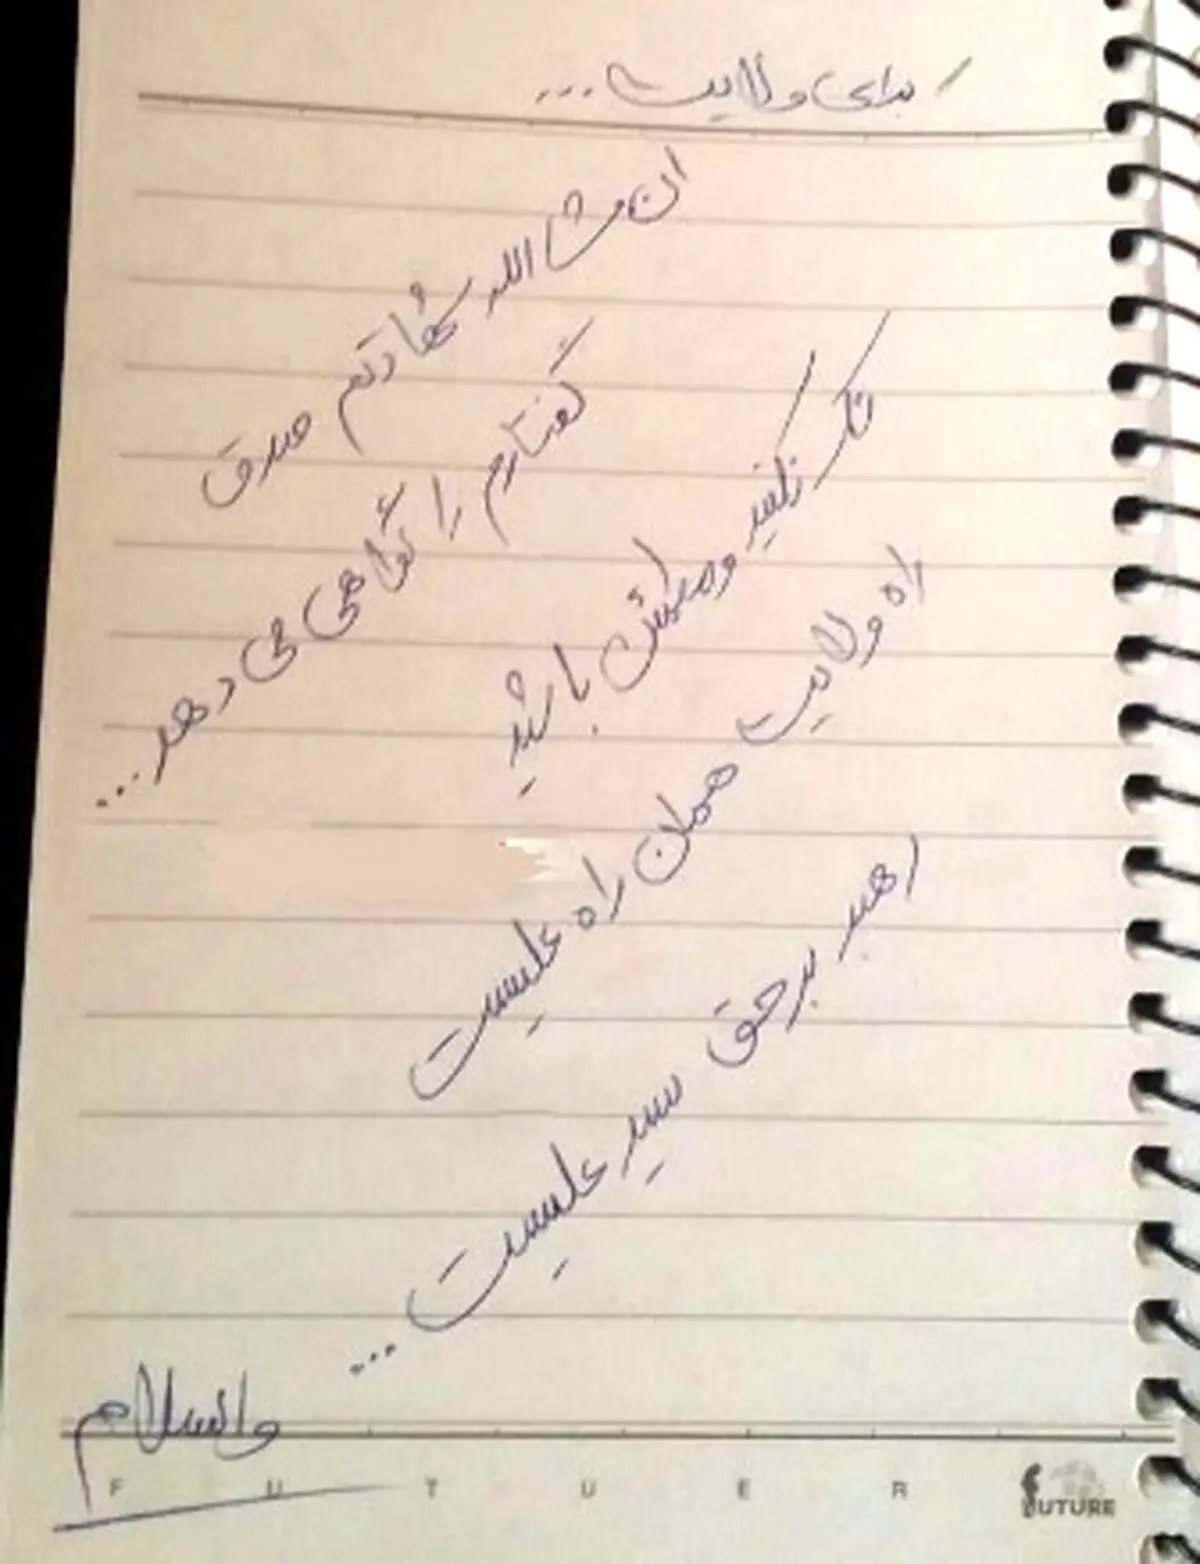 برای ولایت...
ان شاالله شهادتم صدق
گفتارم را گواهی می دهد...
شک نکنید و مطمئن باشید
راه ولایت همان راه علیست
رهبر برحق سید علیست...
والسلام
F U T U E R
FUTURE